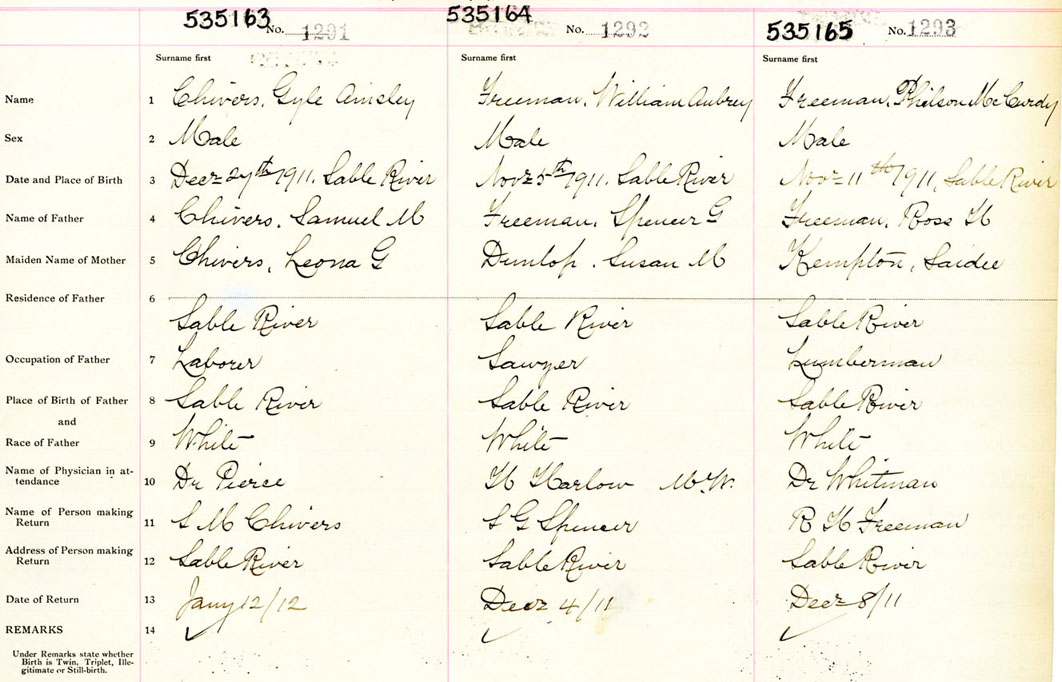 535163 No. 1291 535164 No. 1292 535165 No. 1293
Surname first Surname first Surname first
Name 1 Chivers, Gyle Ainsley Freeman, William Aubrey Freeman, Philson McCurdy
Sex 2 Male Male Male
Date and Place of Birth 3 Decr 27th 1911. Sable River Novr 5th 1911. Sable River Novr 11th 1911, Sable River
Name of Father 4 Chivers, Samuel M Freeman, Spencer G Freeman, Ross H
Maiden Name of Mother 5 Chivers, Leona G Dunlop, Susan M Kempton, Saidee
Residence of Father 6
Sable River Sable River Sable River
Occupation of Father 7 Laborer Sawyer Lumberman
Place of Birth of Father 8 Sable River Sable River Sable River
and
Race of Father 9 White White White
Name of Physician in at-
tendance 10 Dr Pierce H Harlow M.W. Dr Whitman
Name of Person making
Return 11 S M Chivers S G Spencer R H Freeman
Address of Person making
Return 12 Sable River Sable River Sable River
Date of Return 13 Jany 12/12 Decr 4/11 Decr 8/11
REMARKS 14
Under Remarks state whether
Birth is Twin, Triplet, Ille-
gitimate or Still-birth.